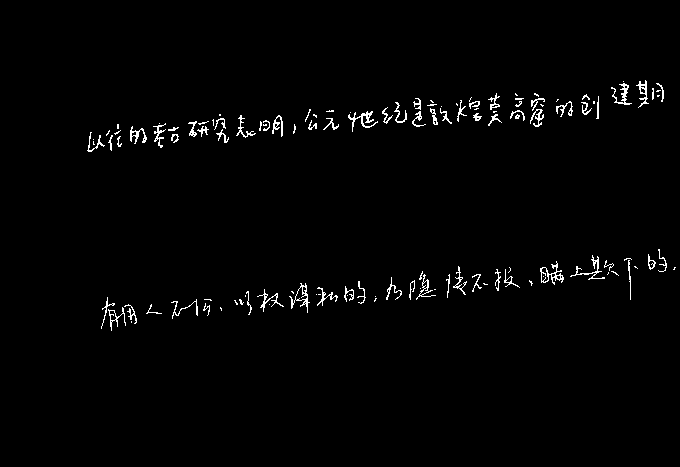 以往的考古研究表明，公元4世纪是敦煌莫高窟的创建期
有用人不公、以权谋私的，有隐情不报、瞒上欺下的，